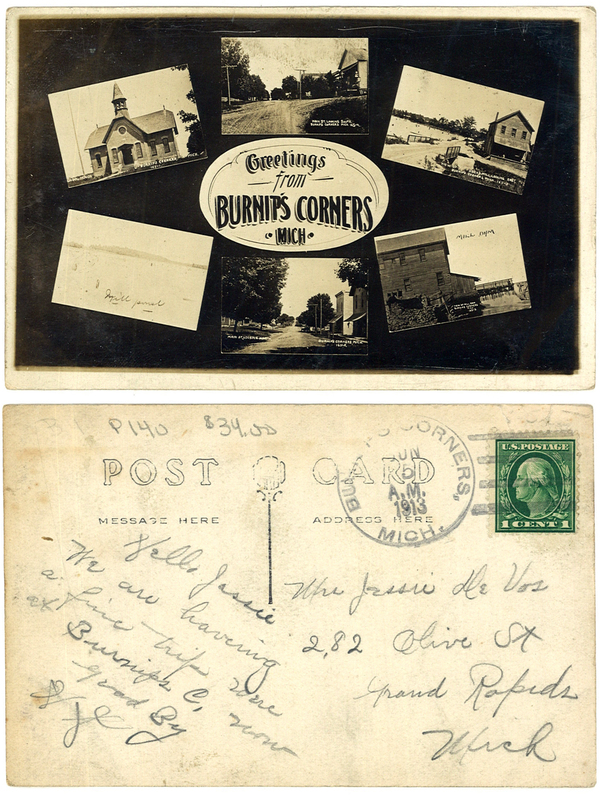 MAIN ST. LOOKING SOUTH
BURNIPS CORNERS MICH.
BURNIPS CORNERS
Greetings
from
BURNIP'S CORNERS
MICH.
Mill pond
MILL DAM
MAIN ST. LOOKING
BURNIPS CORNERS MICH.
P140 $34.00
POST CARD
MESSAGE HERE
ADDRESS HERE
CORNERS,
JUN
A.M.
1913
MICH.
U.S. POSTAGE
1 CENT 1
Hello Jessie
We are having
a fine trip
Burnips C. now
good By
Mrs Jessie De Vos
282 Olive St
Grand Rapids
Mich